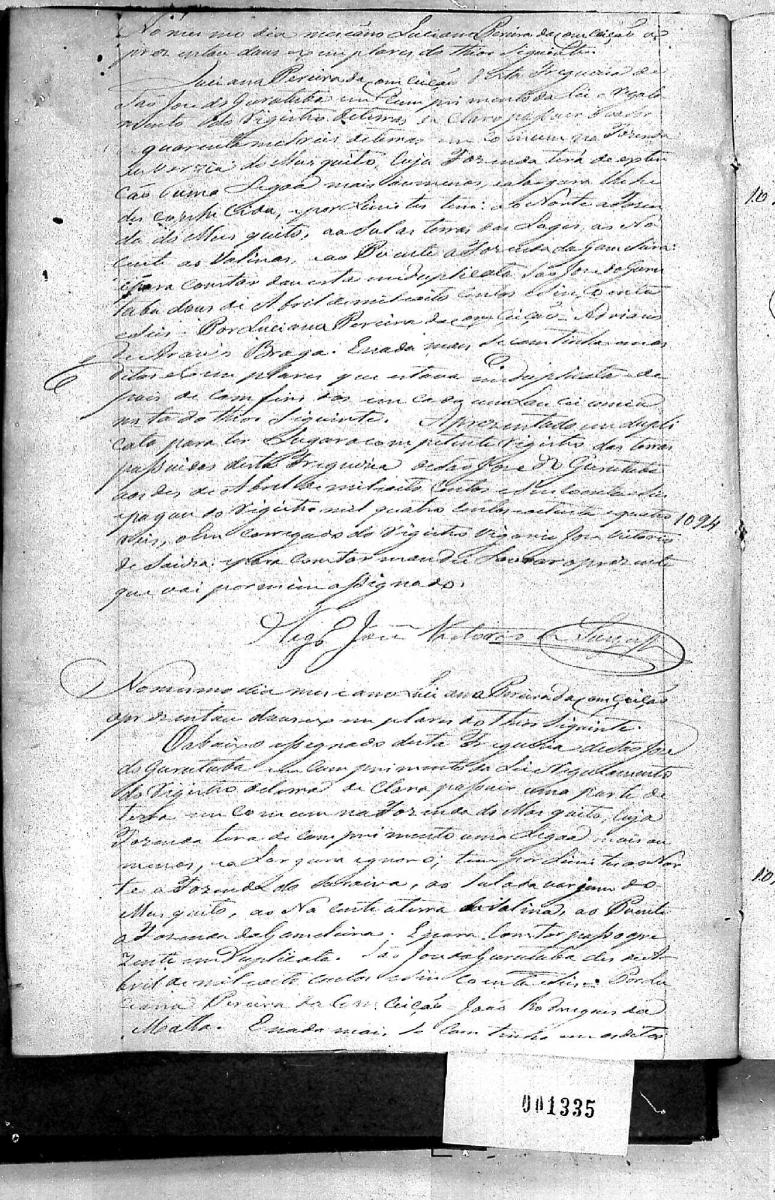 No mesmo dia mes e anno Luciana Pereira da Comceição a
prezentou dous exemplares do thior Siguinte:
Luciana Pereira da Comceição desta Freguezia de
São Jose do Gurutuba em Cumprimento da Lei e regula
mento do Rigistro de terras declaro pussuir
quarenta mil reis de terras em Comum na Fazenda
da Varzia do Musquito, Cuja Fazenda terá de exten
ção huma Legoa mais ou menos, e a largura
des conhecida, e por Limites tem: ao Norte a Fazen
da do Mus quito, ao Sul as terras das Lages, ao Na
cente as Valinas, e ao Puente a Fazenda da Gameleira:
e para constar dou estas em duplicata. São Jose do Guru
tuba dous de Abril de mil oito centos e sin Coenta
e seis. Por Luciana Pereira da Comceição - Adriano
de Araujo Braga. E nada mais se continha nos
ditos exemplares que estava em duplicata
pois de comfiridos em cada um Lancei o mia
nota do thior Siguinte. Aprezentado em dupli
cata para ter Lugar o competente rigistro das terras
pussuidas desta Freguezia de São Jose do Gurutuba
aos des de Abril de mil oito centos e sin Coenta e seis
pagou do rigistro mil quatro centos e oitenta e quatro 1094
reis, o Em carregado do rigistro Vigario Jose Vitorio
de Souza: e para constar mandei Lavrar o prezente
que vai por mim a Signado.
Vigº Jose Victorio de Souza
No mesmo dia mes e anno Luciana Pereira da Comceição
aprezentou dous exemplares do thior Siguinte.
O abaixo asignado desta Freguezia de São Jose
do Gurutuba em Cumprimento da Lei e regulamento
do Rigistro de terras declara pussuir uma parte de
terra em Comum na Fazenda do Musquito, Cuja
Fazenda terá de comprimento uma Legoa mais ou
menos, e a Largura ignoro; tem por Limites ao Nor
te a Fazenda do Saraiva, ao Sul a da varjem do
Musquito, ao Na cente a terra da Valina, ao Puente
a Fazenda da Gameleira. E para Constar passo o pre
zente em Duplicata. São Jose do Gurutuba des de A
bril de mil oito centos e sin Coenta e seis. Por Lu
ciana Pereira da Comceição - João Rodrigues da
Motta. E nada mais se Continha nos ditos
10.
10.
001335